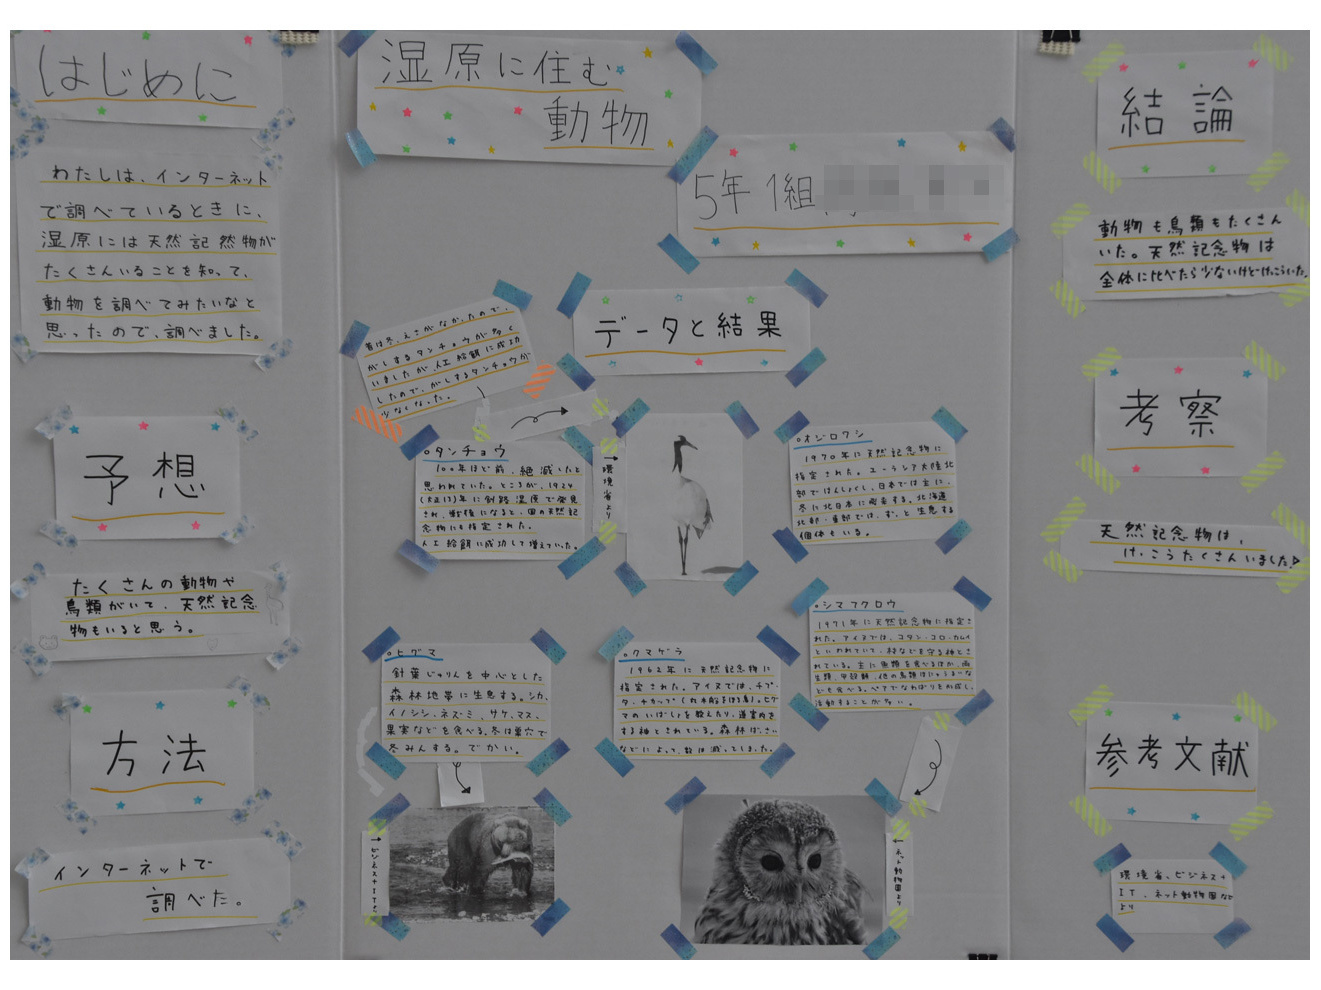 はじめに
わたしは、インターネット
で調べているときに、
湿原には天然記然物が
たくさんいることを知って、
動物を調べてみたいなと
思ったので、調べました。
予想
たくさんの動物や
鳥類がいて、天然記念
物もいると思う。
方法
インターネットで
調べた。
湿原に住む
動物
5年1組
データと結果
昔は冬、えさがなかったので、
がしするタンチョウが多く
いましたが、人工給餌に成功
したので、がしするタンチョウが
少なくなった。
○タンチョウ
100年ほど前、絶滅したと
思われていた。ところが、1924
(大正13)年に釧路湿原で発見
され、戦後になると、国の天然記
念物にも指定された。
人工給餌に成功して増えていった。
→環境省より
○オジロワシ
1970年に天然記念物に
指定された。ユーラシア大陸北
部ではんしょくし、日本では主に、
冬に北日本に飛来する。北海道
北部・東部では、ずっと生息する
個体もいる。
○シマフクロウ
1971年に天然記念物に指定さ
れた。アイヌでは、コタン・コロ・カムイ
といわれていて、村などを守る神とさ
れている。主に魚類を食べるほか、両
生類、甲殻類、他の鳥類ほにゅうるいな
ども食べる。ペアでなわばりをかまえし、
活動することが多い。
○ヒグマ
針葉じゅりんを中心とした
森林地帯に生息する。シカ、
イノシシ、ネズミ、サケ、マス、
果実などを食べる。冬は巣穴で
冬みんする。でかい。
○クマゲラ
1962年に天然記念物に
指定された。アイヌでは、チプ・
タ・チカップ(丸木船をほる鳥)。ヒグ
マのいばしょを教えたり、道案内を
する神とされている。森林ばっさい
などによって、数は減ってしまった。
→ビジネス+ITより
←ネット動物園より
結論
動物も鳥類もたくさん
いた。天然記念物は
全体に比べたら少ないけどけっこういた。
考察
天然記念物は、
けっこうたくさんいました
参考文献
環境省、ビジネス+
IT、ネット動物園など
より